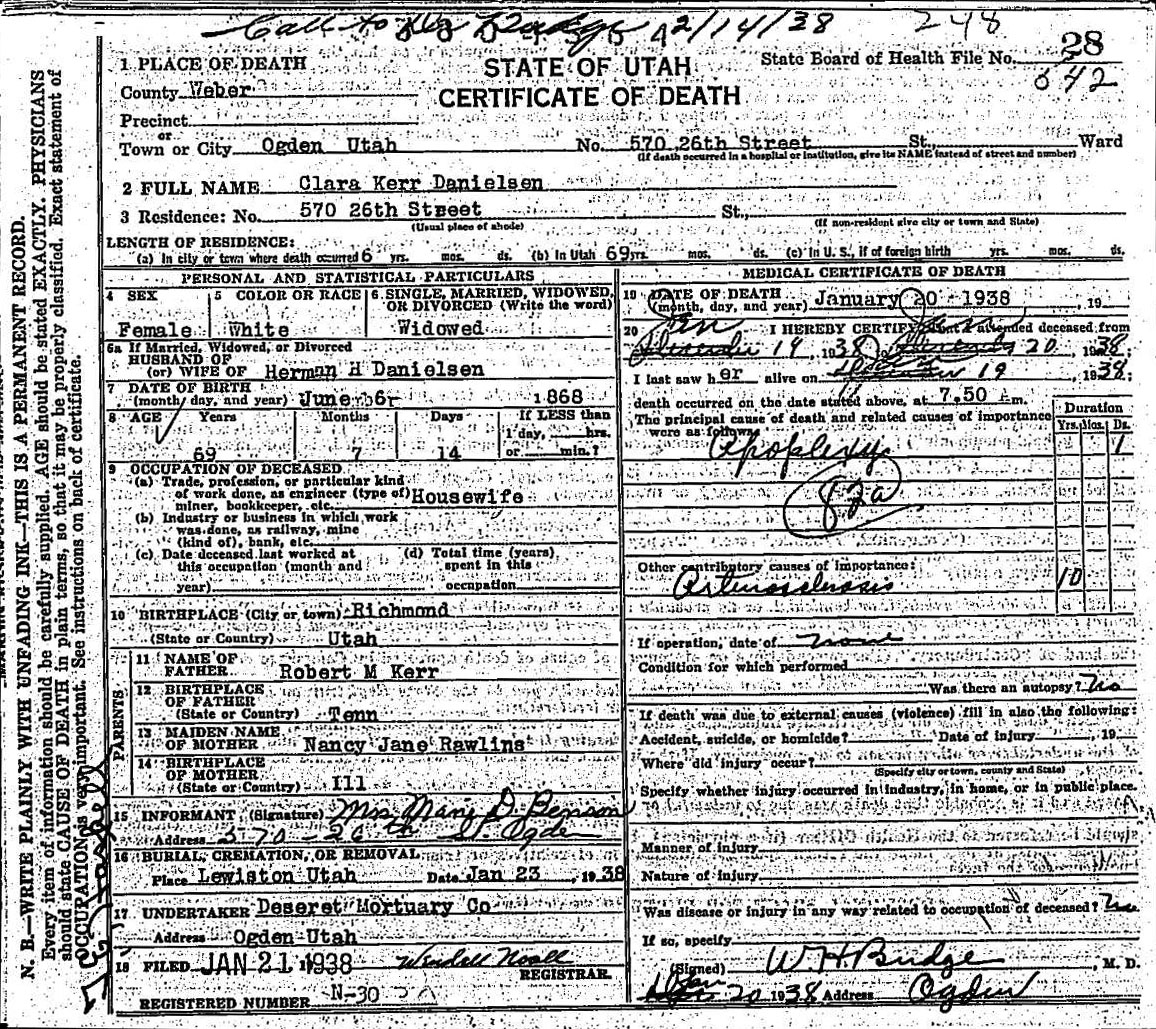 Call to Dr Budge 2/14/38 248
28
642
1 PLACE OF DEATH
STATE OF UTAH
State Board of Health File No.
County Weber
CERTIFICATE OF DEATH
Precinct
or
Town or City Ogden Utah No. 570 26th Street St., Ward
(If death occurred in a hospital or institution, give its NAME instead of street and number)
2 FULL NAME Clara Kerr Danielsen
3 Residence: No. 570 26th Street St.,
(Usual place of abode) (If non-resident give city or town and State)
LENGTH OF RESIDENCE:
(a) In city or town where death occurred 6 yrs. mos. ds. (b) In Utah 69 yrs. mos. ds. (c) In U. S., if of foreign birth yrs. mos. ds.
PERSONAL AND STATISTICAL PARTICULARS
4 SEX 5 COLOR OR RACE 6 SINGLE, MARRIED, WIDOWED, OR DIVORCED (Write the word)
Female White Widowed
6a If Married, Widowed, or Divorced
HUSBAND OF
(or) WIFE OF Herman H Danielsen
7 DATE OF BIRTH
(month, day, and year) June 6, 1868
8 AGE Years Months Days If LESS than
1 day, hrs.
69 7 14 or min.?
9 OCCUPATION OF DECEASED
(a) Trade, profession, or particular kind
of work done, as engineer (type of) Housewife
miner, bookkeeper, etc.
(b) Industry or business in which work
was done, as railway, mine
(kind of), bank, etc.
(c) Date deceased last worked at (d) Total time (years)
this occupation (month and spent in this
year) occupation
10 BIRTHPLACE (City or town) Richmond
(State or Country) Utah
PARENTS
11 NAME OF
FATHER Robert M Kerr
12 BIRTHPLACE
OF FATHER
(State or Country) Tenn
13 MAIDEN NAME
OF MOTHER Nancy Jane Rawlins
14 BIRTHPLACE
OF MOTHER
(State or Country) Ill
15 INFORMANT (Signature) Mrs Marie D. Benson
Address 570 - 26th St. Ogden
16 BURIAL, CREMATION, OR REMOVAL
Place Lewiston Utah Date Jan 23, 1938
17 UNDERTAKER Deseret Mortuary Co
Address Ogden Utah
18 FILED JAN 21 1938 Wendell Noall
REGISTRAR.
REGISTERED NUMBER N-30
MEDICAL CERTIFICATE OF DEATH
19 DATE OF DEATH
(month, day, and year) January 20 1938, 19
20 Jan I HEREBY CERTIFY, that I attended deceased from Jan
19, 1938, 20, 1938;
I last saw her alive on 19, 1938;
death occurred on the date stated above, at 7.50 m.
The principal cause of death and related causes of importance
were as follows: Duration
Yrs. Mos. Ds.
Apoplexy 1
82a
Other contributory causes of importance:
Arteriosclerosis 10
If operation, date of none
Condition for which performed
Was there an autopsy? No
If death was due to external causes (violence) fill in also the following:
Accident, suicide, or homicide? Date of injury, 19
Where did injury occur?
(Specify city or town, county and State)
Specify whether injury occurred in industry, in home, or in public place.
Manner of injury
Nature of injury
Was disease or injury in any way related to occupation of deceased? No
If so, specify
(Signed) W. H. Budge, M. D.
Jan 20 1938 Address Ogden
N. B.—WRITE PLAINLY WITH UNFADING INK—THIS IS A PERMANENT RECORD.
Every item of information should be carefully supplied. AGE should be stated EXACTLY. PHYSICIANS
should state CAUSE OF DEATH in plain terms, so that it may be properly classified. Exact statement of
OCCUPATION is very important. See instructions on back of certificate.